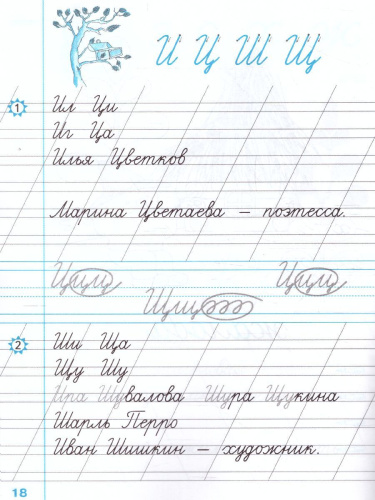 И Ц Ш Щ
1
Ил Ци
Иг Ца
Илья Цветков
Марина Цветаева — поэтесса.
2
Ши Ща
Щу Шу
Ира Шувалова Шура Щукина
Шарль Перро
Иван Шишкин — художник.
18